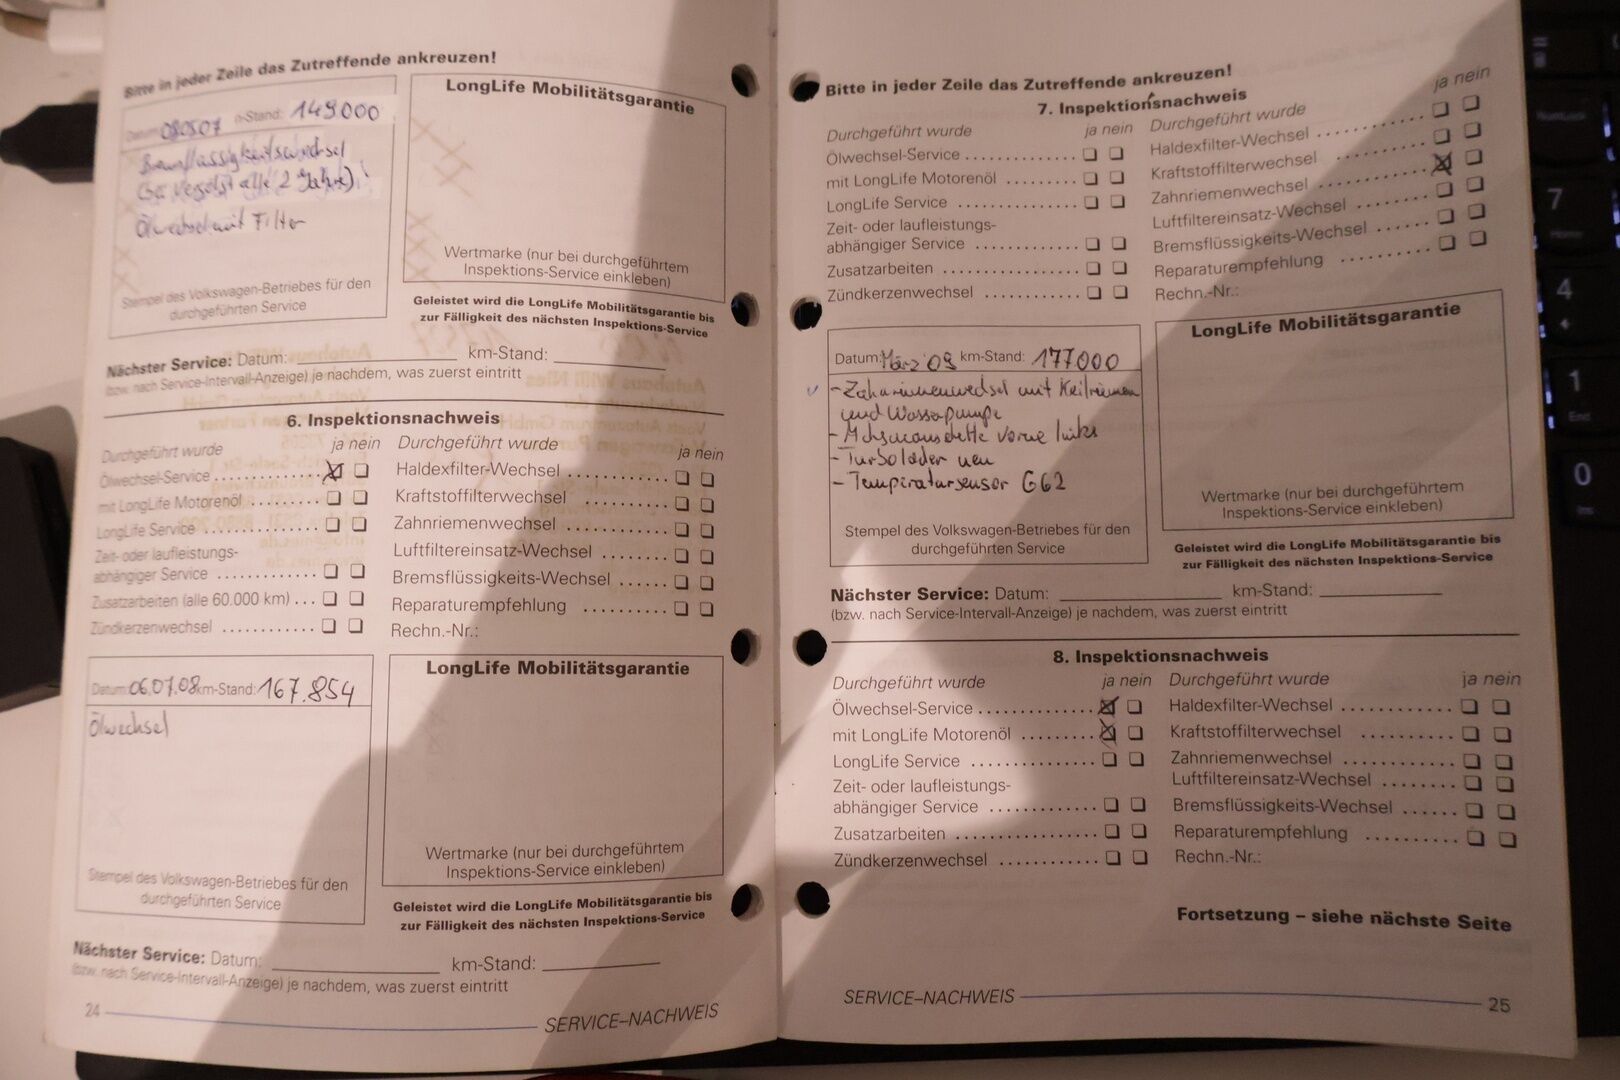 Bitte in jeder Zeile das Zutreffende ankreuzen!
Datum: 08.05.07 n-Stand: 149.000
Bremsflüssigkeitswechsel
alle 2 Jahre)
Ölwechsel mit Filter
Stempel des Volkswagen-Betriebes für den
durchgeführten Service
LongLife Mobilitätsgarantie
Wertmarke (nur bei durchgeführtem
Inspektions-Service einkleben)
Geleistet wird die LongLife Mobilitätsgarantie bis
zur Fälligkeit des nächsten Inspektions-Service
Nächster Service: Datum: km-Stand:
(bzw. nach Service-Intervall-Anzeige) je nachdem, was zuerst eintritt
6. Inspektionsnachweis
Durchgeführt wurde ja nein
Ölwechsel-Service
mit LongLife Motorenöl
LongLife Service
Zeit- oder laufleistungs-
abhängiger Service
Zusatzarbeiten (alle 60.000 km)
Zündkerzenwechsel
Durchgeführt wurde ja nein
Haldexfilter-Wechsel
Kraftstoffilterwechsel
Zahnriemenwechsel
Luftfiltereinsatz-Wechsel
Bremsflüssigkeits-Wechsel
Reparaturempfehlung
Rechn.-Nr.:
Datum: 06.07.08 km-Stand: 167.854
Ölwechsel
Stempel des Volkswagen-Betriebes für den
durchgeführten Service
LongLife Mobilitätsgarantie
Wertmarke (nur bei durchgeführtem
Inspektions-Service einkleben)
Geleistet wird die LongLife Mobilitätsgarantie bis
zur Fälligkeit des nächsten Inspektions-Service
Nächster Service: Datum: km-Stand:
(bzw. nach Service-Intervall-Anzeige) je nachdem, was zuerst eintritt
24 SERVICE–NACHWEIS
Bitte in jeder Zeile das Zutreffende ankreuzen!
7. Inspektionsnachweis
Durchgeführt wurde ja nein
Ölwechsel-Service
mit LongLife Motorenöl
LongLife Service
Zeit- oder laufleistungs-
abhängiger Service
Zusatzarbeiten
Zündkerzenwechsel
Durchgeführt wurde ja nein
Haldexfilter-Wechsel
Kraftstoffilterwechsel
Zahnriemenwechsel
Luftfiltereinsatz-Wechsel
Bremsflüssigkeits-Wechsel
Reparaturempfehlung
Rechn.-Nr.:
Datum: März 09 km-Stand: 177000
- Zahnriemenwechsel mit Keilriemen
und Wasserpumpe
- Achsmanschette vorne links
- Turbolader neu
- Temperatursensor G62
Stempel des Volkswagen-Betriebes für den
durchgeführten Service
LongLife Mobilitätsgarantie
Wertmarke (nur bei durchgeführtem
Inspektions-Service einkleben)
Geleistet wird die LongLife Mobilitätsgarantie bis
zur Fälligkeit des nächsten Inspektions-Service
Nächster Service: Datum: km-Stand:
(bzw. nach Service-Intervall-Anzeige) je nachdem, was zuerst eintritt
8. Inspektionsnachweis
Durchgeführt wurde ja nein
Ölwechsel-Service
mit LongLife Motorenöl
LongLife Service
Zeit- oder laufleistungs-
abhängiger Service
Zusatzarbeiten
Zündkerzenwechsel
Durchgeführt wurde ja nein
Haldexfilter-Wechsel
Kraftstoffilterwechsel
Zahnriemenwechsel
Luftfiltereinsatz-Wechsel
Bremsflüssigkeits-Wechsel
Reparaturempfehlung
Rechn.-Nr.:
Fortsetzung – siehe nächste Seite
SERVICE–NACHWEIS 25
7
Home
4
1
End
0
Ins